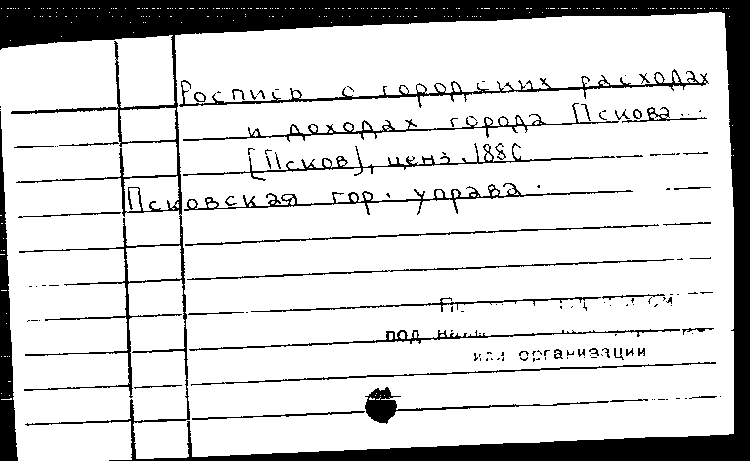 Роспись о городских расходах
и доходах города Пскова...
[Псков], ценз. 1880
Псковская гор. управа.
под
или организации